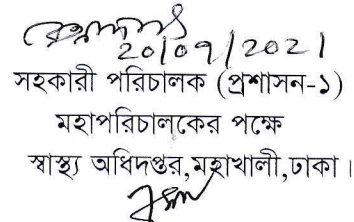 20/09/2021
সহকারী পরিচালক (প্রশাসন-১)
মহাপরিচালকের পক্ষে
স্বাস্থ্য অধিদপ্তর,মহাখালী,ঢাকা।